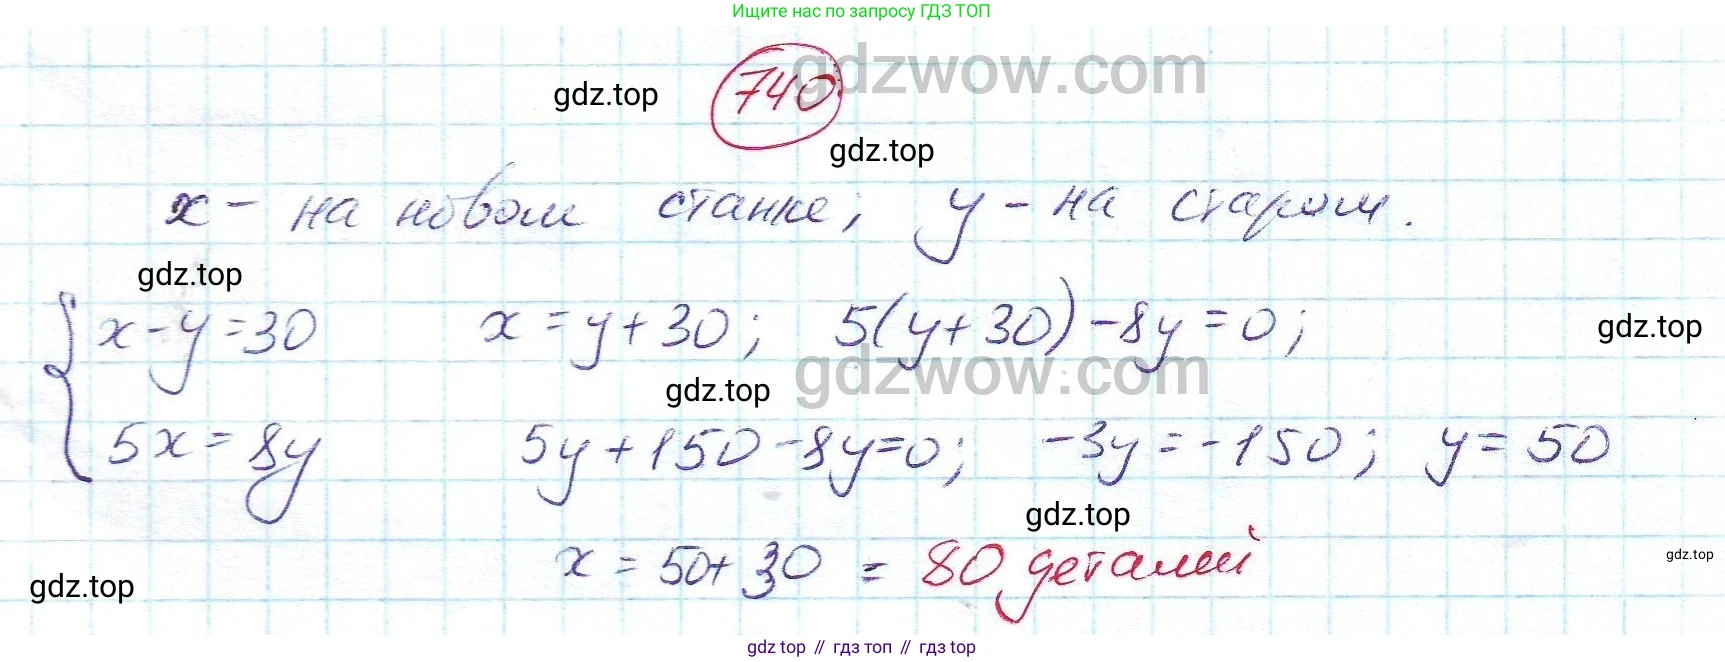 Ищите нас по запросу ГДЗ ТОП
gdzwow.com
740
gdz.top
gdz.top
x - на новом станке; y - на старом.
gdz.top
{ x - y = 30 x = y + 30; 5(y + 30) - 8y = 0;
gdz.top
gdzwow.com
gdz.top
5x = 8y 5y + 150 - 8y = 0; -3y = -150; y = 50
gdz.top
x = 50 + 30 = 80 деталей
gdz.top
gdz.top
gdz top // гдз топ // gdz top